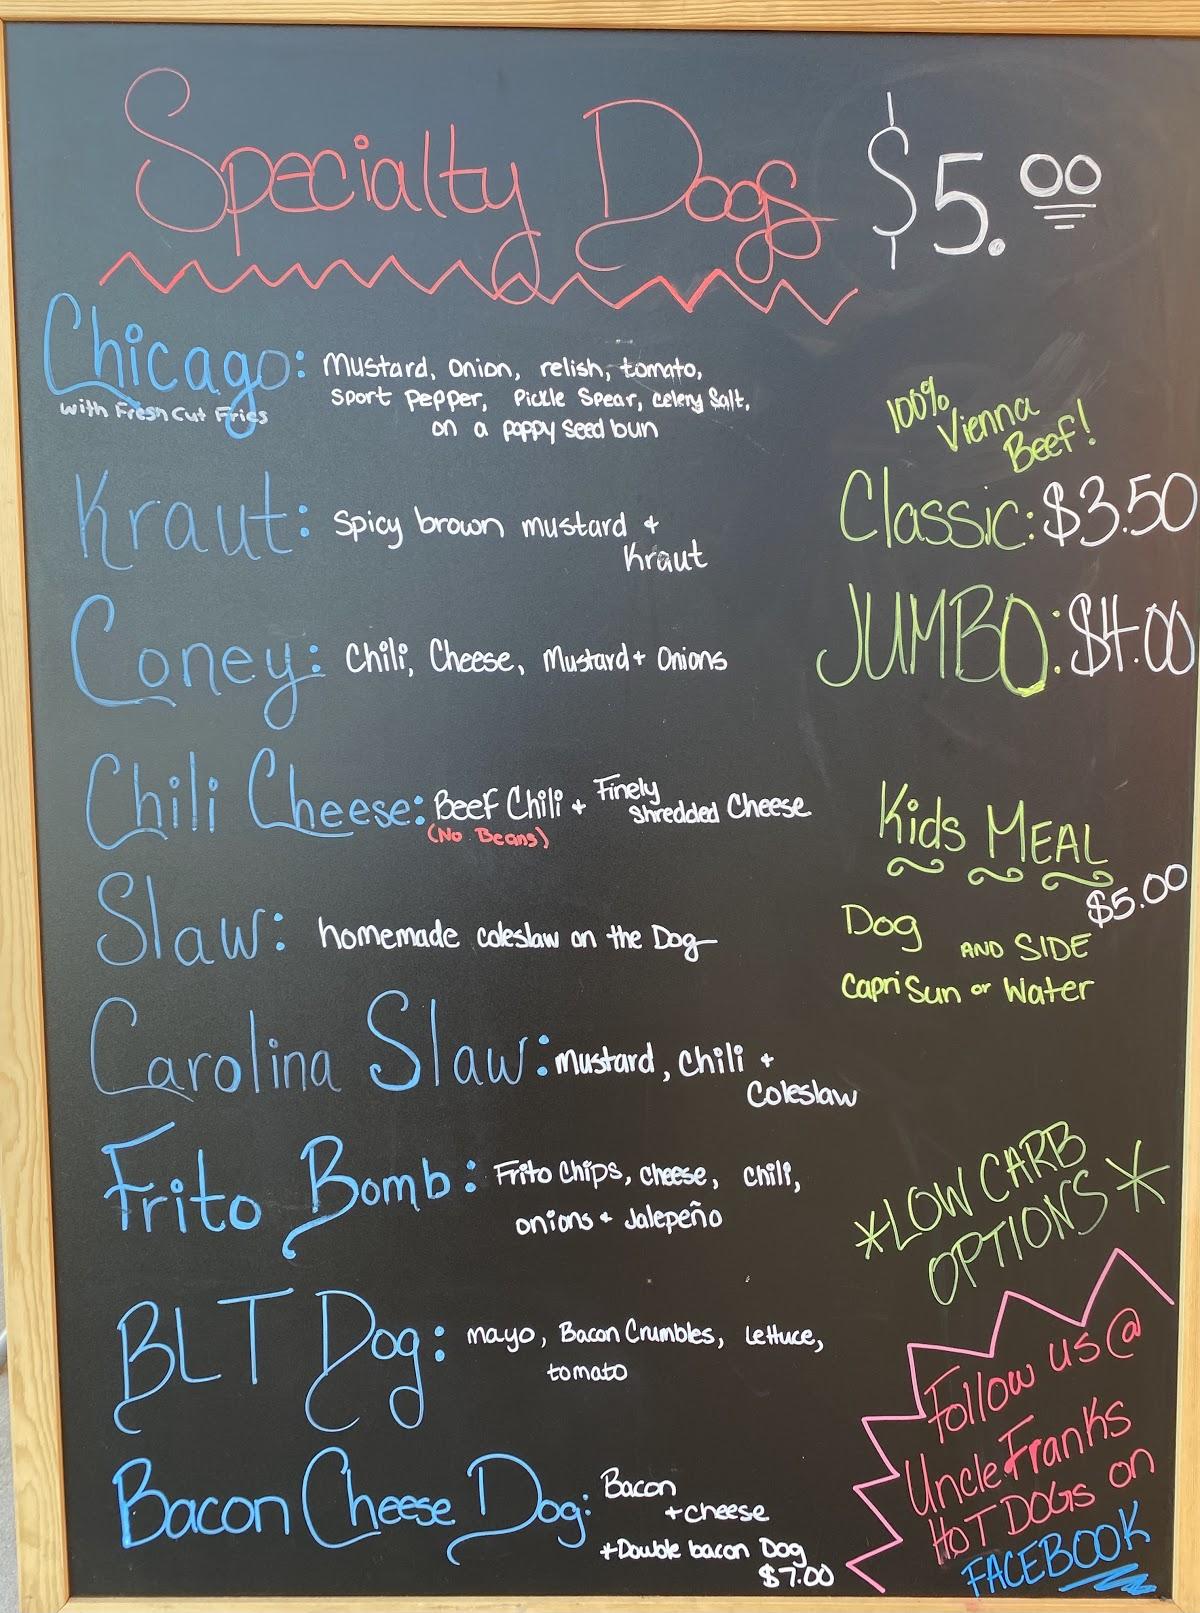 Specialty Dogs $5.00
Chicago: Mustard, onion, relish, tomato,
with Fresh Cut Fries
Sport Pepper, Pickle Spear, Celery Salt,
on a poppy seed bun
100%
Vienna
Beef!
Kraut: Spicy brown mustard +
Kraut
Classic: $3.50
Coney: Chili, Cheese, Mustard + Onions
JUMBO: $4.00
Chili Cheese: Beef Chili + Finely
Shredded Cheese
(No Beans)
Kids MEAL
$5.00
Dog AND SIDE
Capri Sun or Water
Slaw: homemade coleslaw on the Dog
Carolina Slaw: Mustard, Chili +
Coleslaw
Frito Bomb: Frito Chips, cheese, chili,
onions + Jalepeño
*LOW CARB
OPTIONS*
BLT Dog: mayo, Bacon Crumbles, lettuce,
tomato
Bacon Cheese Dog: Bacon
+cheese
+Double bacon Dog
$7.00
Follow us @
Uncle Franks
HOT DOGS on
FACEBOOK